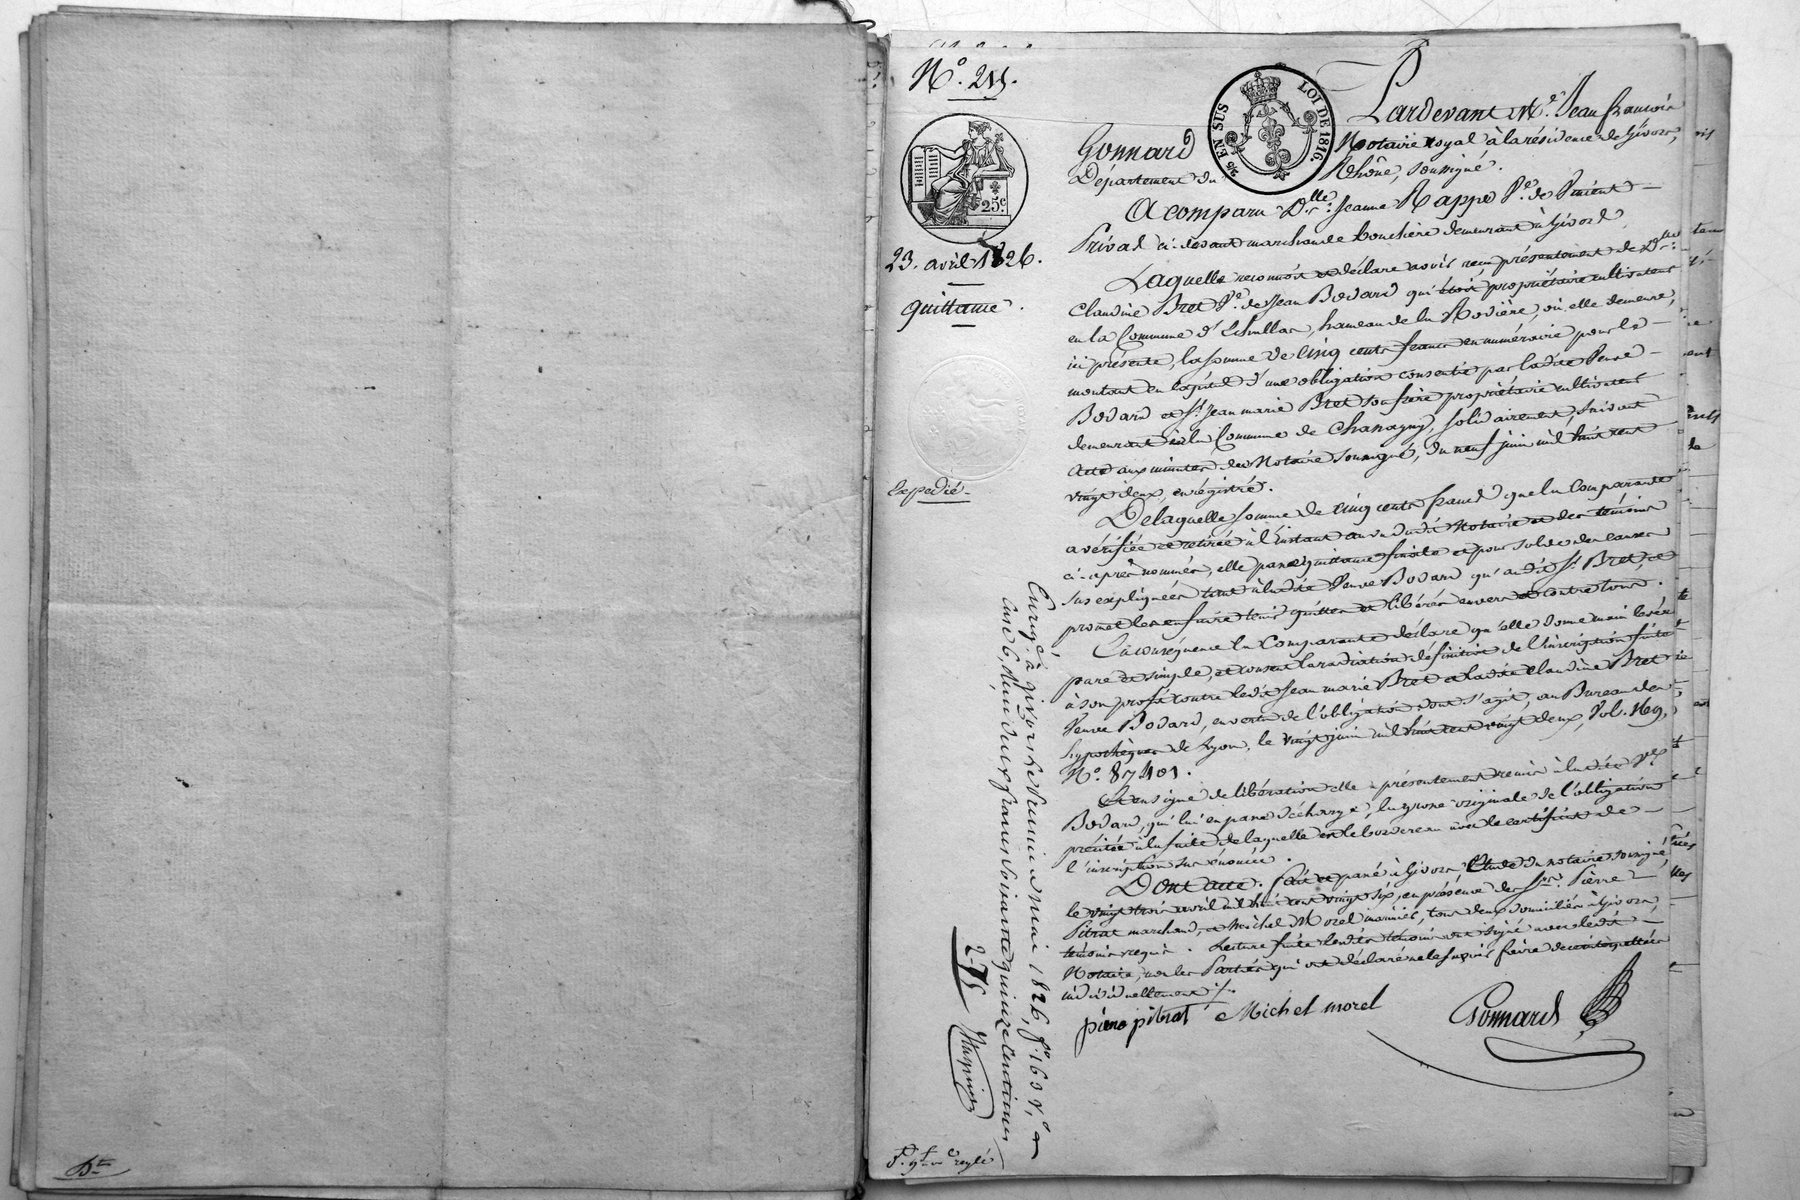 N.o 215.
25c
EN SUS
LOI DE 1816.
23. avril 1826.
quittance.
Expedié
Pardevant Me. Jean françois
Gonnard Notaire royal à la résidence de Givors,
Département du Rhône, soussigné.
A comparu Dlle. Jeanne Rappe Ve. de Vincent
Privat ci-devant marchande bouchère demeurant à Givors
Laquelle reconnoit et déclare avoir reçu présentement de Dlle.
Claudine Bret Ve. de Jean Bodard qui étoit propriétaire cultivateur
en la Commune d'Echallas, hameau de la Rodière, où elle demeure,
ici présente, la somme de cinq cents francs en numéraire pour le
montant en capital d'une obligation consentie par ladite Veuve
Bodard et Sr. Jean marie Bret son frère propriétaire cultivateur
demeurant en la Commune de Chassagny, solidairement, suivant
acte aux minutes du Notaire soussigné, du neuf juin mil huit cent
vingt deux, enrégistré.
De laquelle somme de cinq cents francs que la Comparante
a vérifiée et retirée à l'instant au vu dudit Notaire et des témoins
ci-après nommés, elle passe quittance finale et pour solde des causes
sus expliquées tant à ladite Veuve Bodard qu'audit Sr. Bret, et
promet les en faire tenir quittes et libérés envers et contre tous.
En conséquence la Comparante déclare qu'elle donne main levée
pure et simple, et consent la radiation définitive de l'inscription faite
à son profit contre ledit Jean marie Bret et ladite Claudine Bret
Veuve Bodard, en vertu de l'obligation dont s'agit, au Bureau des
hypothèques de Lyon, le vingt juin mil huit cent vingt deux, Vol. 169,
N.o 87401.
Et en signe de libération elle a présentement remis à ladite Ve.
Bodard, qui lui en passe décharge, la grosse originale de l'obligation
précitée à la suite de laquelle est le bordereau avec le certificat de
l'inscription sus énoncée.
Dont acte. fait et passé à Givors Etude du notaire soussigné,
le vingt trois avril mil huit cent vingt six, en présence des Srs. Pierre
Pitrat marchand, et Michel Morel marinier, tous deux domiciliés à Givors,
témoins requis. Lecture faite lesdits témoins ont signé avec ledit
Notaire, non les Parties qui ont déclaré ne le savoir faire de ce interpellées
individuellement ./.
pierre pitrat Michel morel Gonnard
Enregé. à givors le premier mai 1826, fo. 160 Vo.
Case 6, Reçu deux francs soixante quinze centimes
2-75